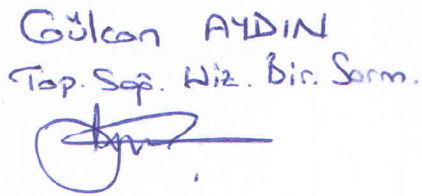 Gülcan AYDIN
Top. Sağ. Hiz. Bir. Sorm.